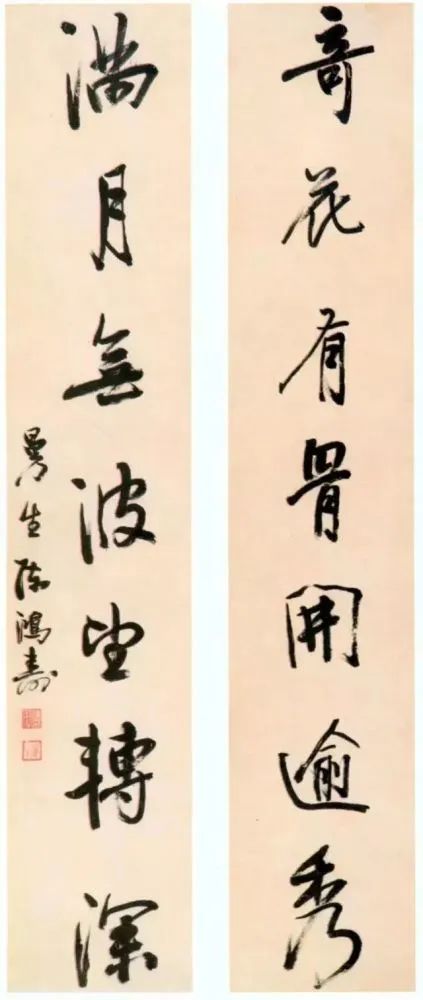 奇花有骨開逾秀
滿月無波望轉深
曼生陳鴻壽